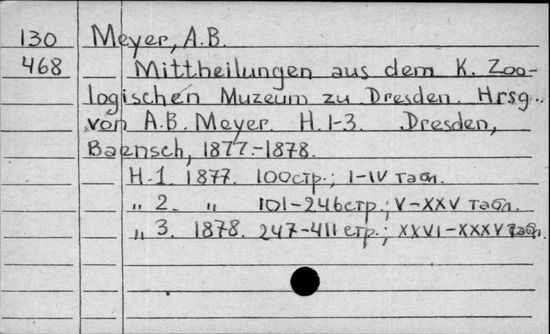 130 Meyer, A.B.
468 Mittheilungen aus dem K. Zoo-
logischen Muzeum zu Dresden. Hrsg.
von A.B. Meyer. H. 1-3. Dresden,
Baensch, 1877.-1878.
H. 1. 1877. 100стр.; I-IV табл.
„ 2. „ 101-246стр.; V-XXV табл.
„ 3. 1878. 247-411 стр.; XXVI-XXXV табл.